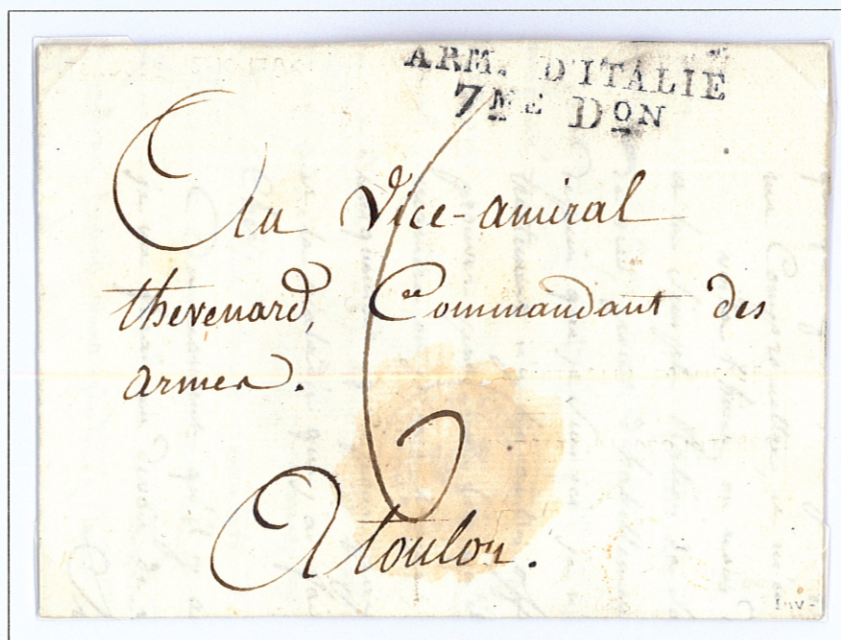 ARM. D'ITALIE
7ME DON
6
Au Vice-amiral
thevenard, Commandant des
armes.
A toulon.
Inv-